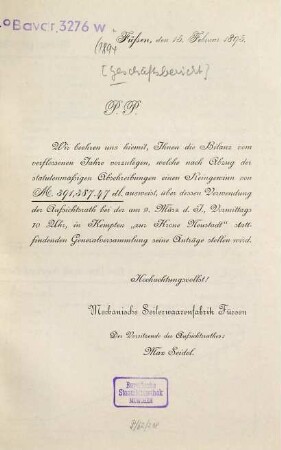 4° Bavar. 3276 w
(1894
Füssen, den 15. Februar 1895.
[Geschäftsbericht]
P. P.
Wir beehren uns hiemit, Ihnen die Bilanz vom
verflossenen Jahre vorzulegen, welche nach Abzug der
statutenmäßigen Abschreibungen einen Reingewinn von
M. 391,387.47 dl. ausweist, über dessen Verwendung
der Aufsichtsrath bei der am 9. März d. J., Vormittags
10 Uhr, in Kempten „zur Krone Neustadt" statt-
findenden Generalversammlung seine Anträge stellen wird.
Hochachtungsvollst!
Mechanische Seilerwaarenfabrik Füssen
Der Vorsitzende des Aufsichtsrathes:
Max Seidel.
Bayerische
Staatsbibliothek
MÜNCHEN